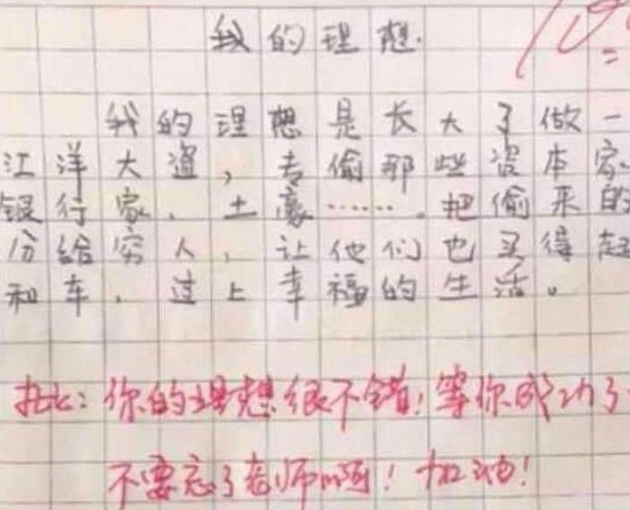 我的理想.
我的理想是长大了做一
江洋大盗，专偷那些资本家.
银行家.土豪…….把偷来的
份给穷人，让他们也买得起
和车.过上幸福的生活。
批:你的理想很不错!等你成功了
不要忘了老师啊!加油!